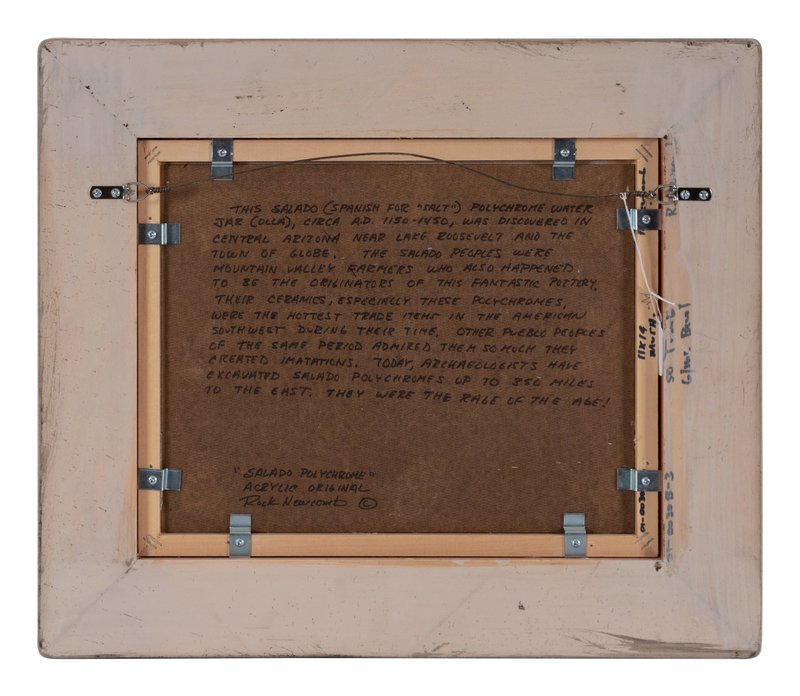 THIS SALADO (SPANISH FOR "SALT") POLYCHROME WATER
JAR (OLLA), CIRCA A.D. 1150-1450, WAS DISCOVERED IN
CENTRAL ARIZONA NEAR LAKE ROOSEVELT AND THE
TOWN OF GLOBE. THE SALADO PEOPLES WERE
MOUNTAIN VALLEY FARMERS WHO ALSO HAPPENED
TO BE THE ORIGINATORS OF THIS FANTASTIC POTTERY.
THEIR CERAMICS, ESPECIALLY THESE POLYCHROMES,
WERE THE HOTTEST TRADE ITEMS IN THE AMERICAN
SOUTHWEST DURING THEIR TIME. OTHER PUEBLO PEOPLES
OF THE SAME PERIOD ADMIRED THEM SO MUCH THEY
CREATED IMATATIONS. TODAY, ARCHAEOLOGISTS HAVE
EXCAVATED SALADO POLYCHROMES UP TO 350 MILES
TO THE EAST. THEY WERE THE RAGE OF THE AGE!
"SALADO POLYCHROME"
ACRYLIC ORIGINAL
Rock Newcomb ©
11X14